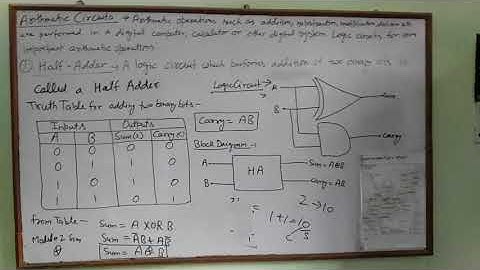 Arithmetic Circuits → Arithmetic operations such as addition, subtraction, multiplication, division etc
are performed in a digital computer, calculator or other digital system. Logic circuits for some
important arithmetic operations
① Half-Adder → A logic circuit which performs addition of two binary bits is
called a Half Adder
Truth Table for adding two binary bits -
Inputs Outputs
A B Sum(S) Carry(C)
0 0 0 0
0 1 1 0
1 0 1 0
1 1 0 1
From Table -
Sum = A XOR B
Sum = AB + AB
Sum = A⊕B
Logic Circuit →
A
B
Sum
Carry
Carry = AB
Block Diagram -
A
B
HA
Sum = A⊕B
Carry = AB
2 → 10
1+1=10
C S